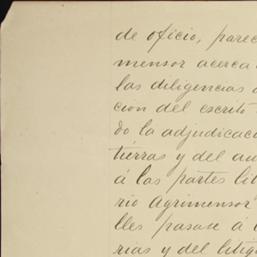 de oficio, parec
mensor acerca
las diligencias
cion del escrito
do la adjudicaci
tierras y del au
á las partes lit
rio Agrimensor
lles pasase á
rias y del litig